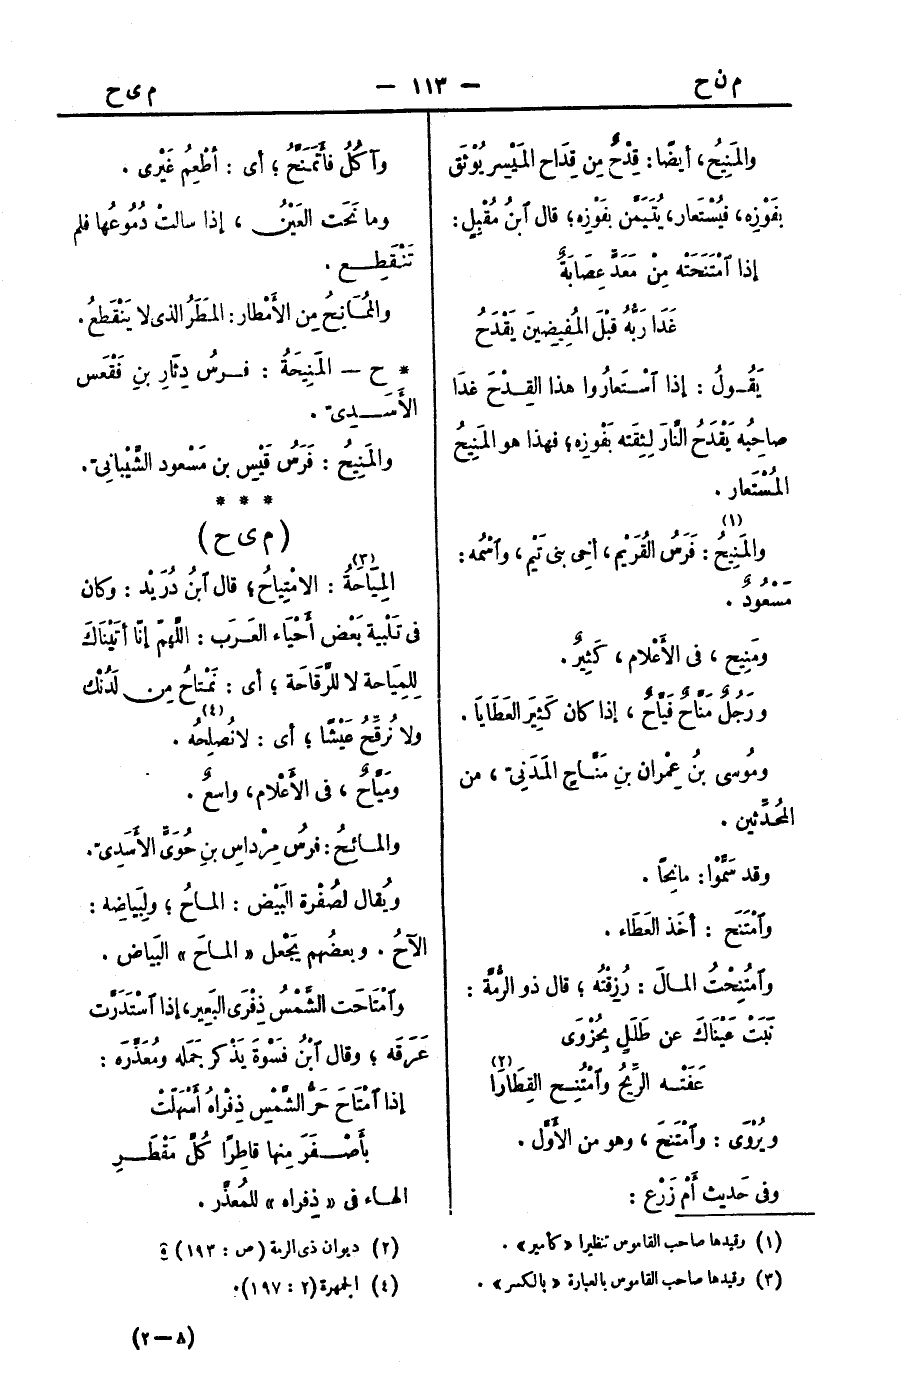 م ن ح
— ١١٣ —
م ى ح
والمَنِيحُ، أيضًا: قِدْحٌ مِن قِدَاح المَيْسر يُوْثَق
بفَوْزِه، فيُسْتَعار، يُتَيَمَّن بفَوْزِه؛ قال ابنُ مُقْبِلٍ:
إذا ٱمْتَنَحَتْه مِنْ مَعَدٍّ عِصَابَةٌ
غَدَا رَبُّه قَبْلَ المُفِيضِينَ يَقْدَحُ
يَقُـولُ : إذا ٱسْـتَعارُوا هذا القِـدْحَ غدَا
صاحِبُه يَقْدَحُ النَّارَ لِثِقَته بفَوْزِه؛ فهذا هو المَنِيحُ
المُسْتَعار .
والمَنِيحُ(١) : فَرَسُ القُرَيْم، أخِى بنى تَيْم، وٱسْمُه :
مَسْعُودٌ .
ومَنِيح ، فى الأعْلام ، كَثِيرٌ.
ورَجُلٌ مَنَّاحٌ فَيَّاحٌ ، إذا كان كَثِيرَ العَطَايَا .
ومُوسى بنُ عِمْران بنِ مَنَّـاحٍ المَدَنِىّ ، من
المُحدِّثين .
وقد سَمَّوْا: مانِحًا .
وٱمْتَنَح : أخَذ العَطَاء .
وٱمْتُنِحْتُ المـالَ : رُزِقْتُه ؛ قال ذو الرُّمَّة :
نَبَتْ عَيْنَاكَ عن طَلَلٍ بحُزْوَى
عَفَتْـه الرِّيحُ وٱمْتُنِـح القِطَارَا(٢)
ويُرْوَى : وٱمْتَنَحَ ، وهو من الأَوَّل .
وفى حَدِيث أم زَرْع :
وآكُلُ فأَتَمَنَّحُ ؛ أى : أُطْعِمُ غَيْرى .
وما نَحَت العَيْنُ ، إذا سالتْ دُمُوعُها فلم
تَنْقَطِـــع .
والمُمَانِحُ مِن الأَمْطار: المَطَرُ الذى لا يَنْقَطعُ.
* ح — المَنِيحَةُ : فـرسُ دِثَارِ بنِ فَقْعَس
الأَسَــدِىّ .
والمَنِيحُ : فَرَسُ قَيْس بن مَسْعود الشَّيْبانىّ.
* * *
(م ى ح)
المِيَاحَةُ(٣) : الامْتِياحُ؛ قال ٱبنُ دُرَيْد : وكان
فى تَلْبية بَعْض أَحْياء العَـرَب : اللَّهمّ إنَّا أتَيْنَاكَ
لِلمِيَاحة لا للرَّقَاحة ؛ أى : نَمْتاحُ مِن لَدُنْك
ولا نُرَقِّحُ عَيْشًا ؛ أى : لا نُصْلِحُه(٤) .
ومَيَّاحٌ ، فى الأَعْلام ، واسعٌ .
والمـائحُ: فرسُ مِرْداسِ بنِ حُوَىٍّ الأَسَدِىّ.
ويُقال لصُفْرة البَيْض : المـاحُ ؛ ولِبَياضِه :
الآحُ . وبعضُهم يَجْعل « المـاحَ » البَياض .
وٱمْتَاحَت الشَّمْسُ ذِفْرَى البَعِير، إذا ٱسْتَدَرَّت
عَرَقَه ؛ وقال ٱبْنُ فَسْوَةَ يَذْكر جَمَله ومُعَذَّرَه :
إذا ٱمْتَاحَ حَرُّ الشَّمْسِ ذِفْراهُ أَسْهَلَتْ
بأَصْــفَرَ مِنها قاطِرًا كُلَّ مَقْطَـــرِ
الهـاء فى « ذِفْراه » للمُعذَّر .
(١) وقيدها صاحب القاموس تنظيرا «كأمير» .
(٢) ديوان ذى الرمة (ص : ١٩٣) .
(٣) وقيدها صاحب القاموس بالعبارة « بالكسر» .
(٤) الجمهرة (٢ : ١٩٧).
(٨—٢)